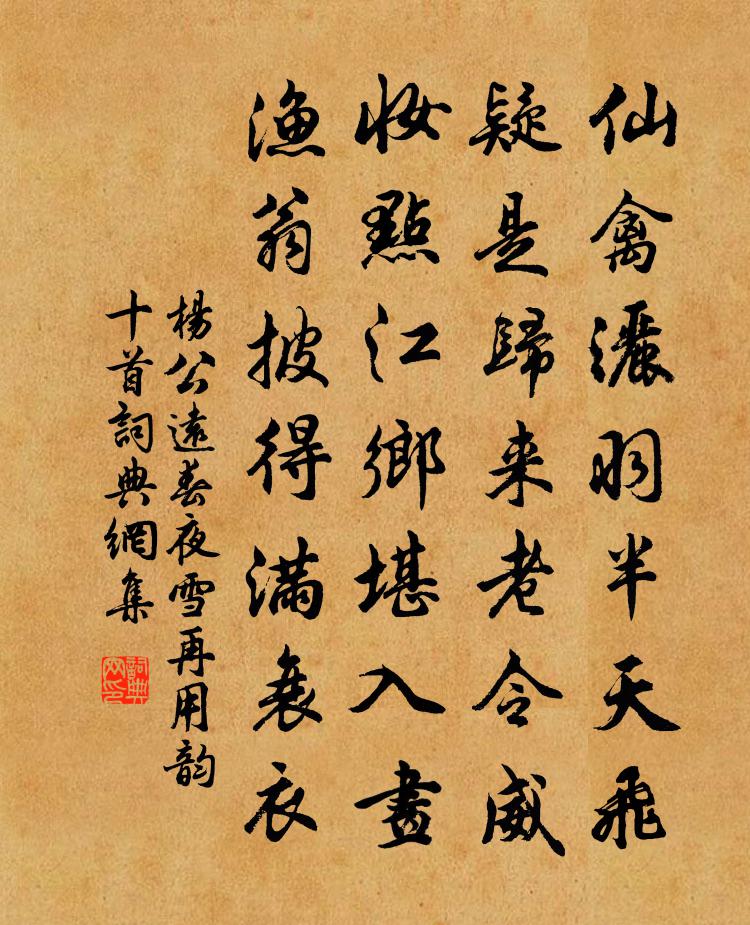 仙禽灑羽半天飛
疑是歸来老令威
妆點江鄉堪入畫
漁翁披得滿蓑衣
楊公遠春夜雪再用韵
十首詞典網集
詞典网印